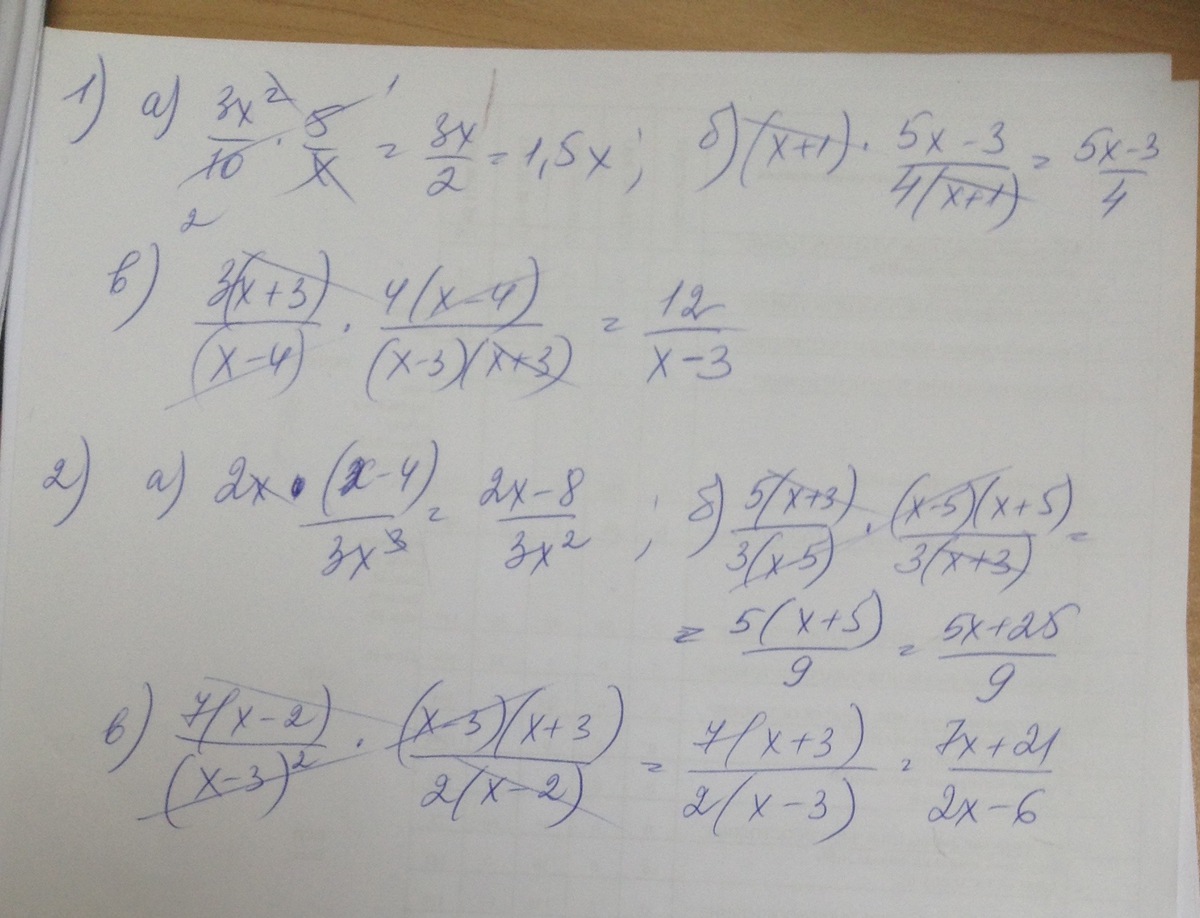 1) а) 3x²/10 · 5/x = 3x/2 = 1,5x ; б) (x+1) · 5x-3/4(x+1) = 5x-3/4
2 1
в) 3(x+3)/(x-4) · 4(x-4)/(x-3)(x+3) = 12/x-3
2) а) 2x · (x-4)/3x³ = 2x-8/3x² ; б) 5(x+3)/3(x-5) · (x-5)(x+5)/3(x+3) =
= 5(x+5)/9 = 5x+25/9
в) 7(x-2)/(x-3)² · (x-3)(x+3)/2(x-2) = 7(x+3)/2(x-3) = 7x+21/2x-6